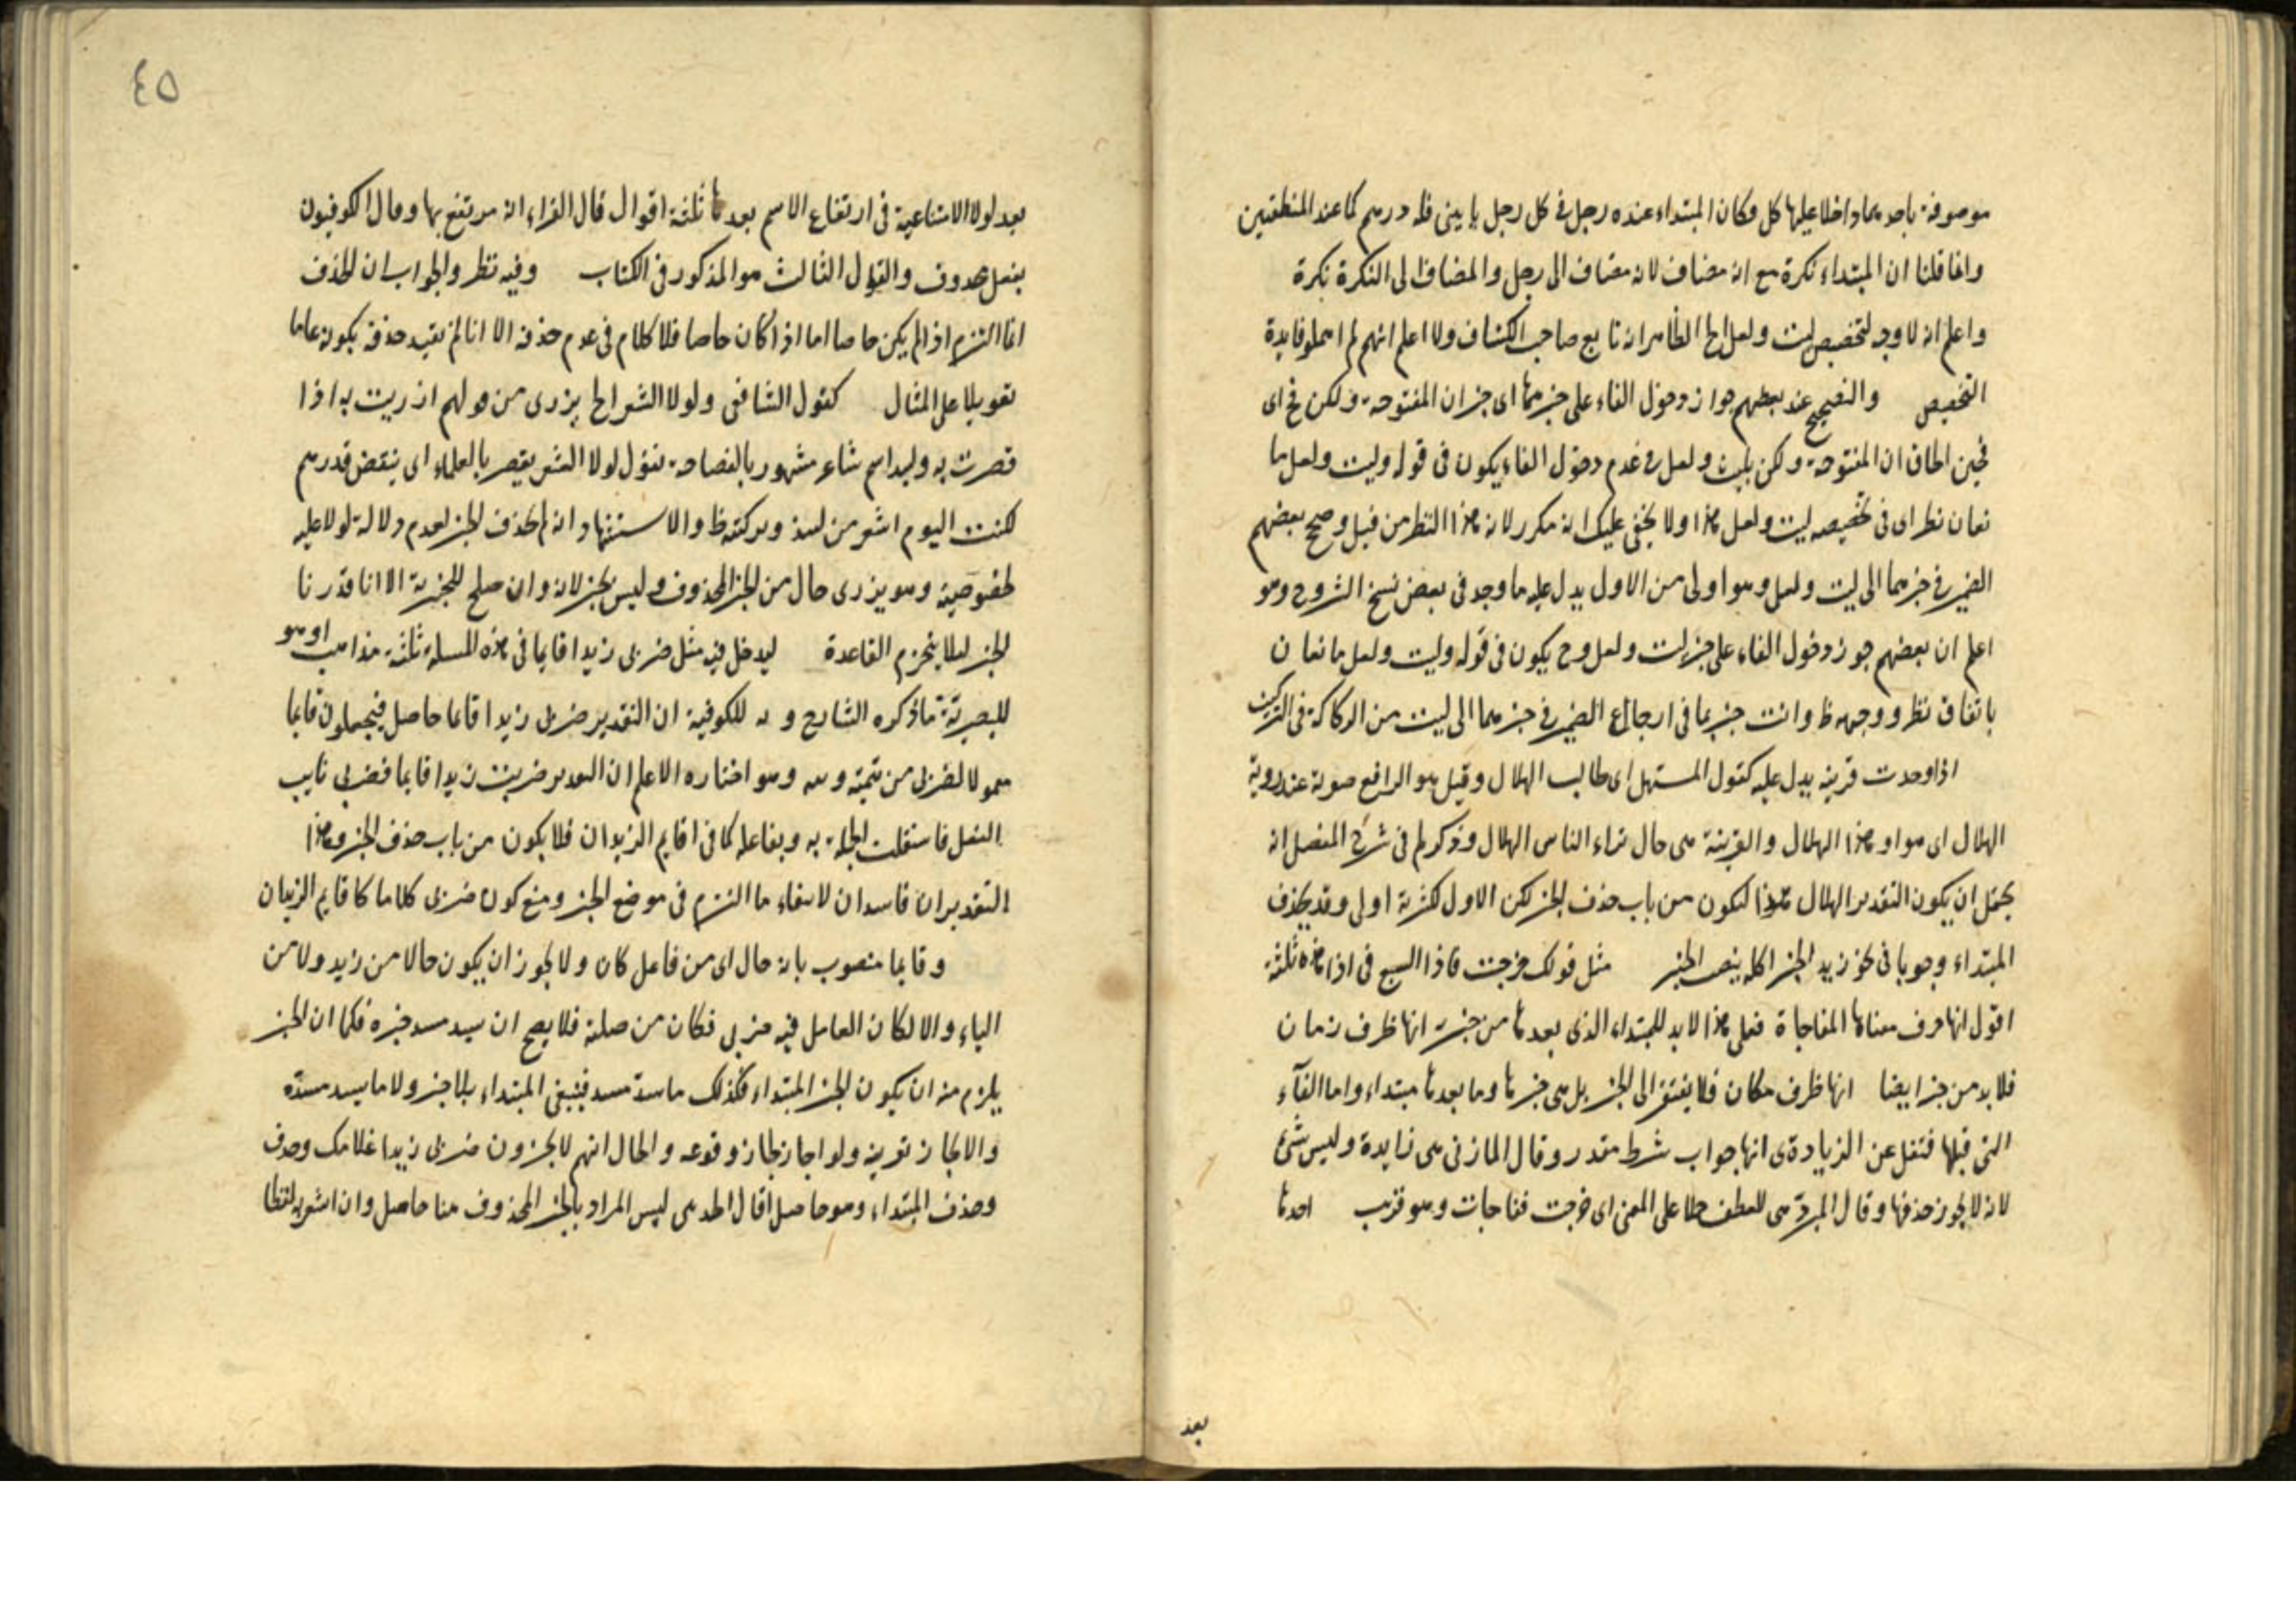 موصوفة باحدهما داخلا عليها كل وكان المبتداء عنده رجل فى كل رجل ياتينى فله درهم كما عند المنطقيين
وانما قلنا ان المبتداء نكرة مع انه مضاف لانه مضاف الى رجل والمضاف الى النكرة نكرة
واعلم انه لا وجه لتخصيص ليت ولعل الظاهر انه تابع صاحب الكشاف ولا اعلم انهم لم اهملو فايدة
التخصيص والتصحيح عند بعضهم جواز دخول الفاء على خبرهما اى خبر ان المفتوحة ولكن اى
فحين الحاق ان المفتوحة ولكن بليت ولعل فى عدم دخول الفاء يكون فى قوله وليت ولعل ما
نعان نظر اى فى تخصيصه ليت ولعل هذا ولا يخفى عليك انه مكرر لانه هذا النظر من قبل وصحح بعضهم
الضمير فى خبرهما الى ليت ولعل وهو اولى من الاول يدل عليه ما وجد فى بعض نسخ الشروح وهو
اعلم ان بعضهم جوز دخول الفاء على خبر ليت ولعل وح يكون فى قوله وليت ولعل مانعان
باتفاق نظر ووجهه ظ وانت خبير بما فى ارجاع الضمير فى خبرهما الى ليت من الركاكة فى التركيب
اذا وجدت قرينة يدل عليه كقول المستهل اى طالب الهلال وقيل هو الرافع صوته عند روية
الهلال اى هو او هذا الهلال والقرينة هى حال تراء الناس الهلال وذكر لم فى شرح المفصل انه
يحتمل ان يكون التقدير الهلال هذا ليكون من باب حذف الخبر لكن الاول لكثرته اولى وقد يحذف
المبتداء وجوبا فى نحو زيد الخبز اكله بنصب الخبز مثل قولك خرجت فاذا السبع فى اذا هذه ثلثة
اقول انها حرف معناها المفاجاة فعلى هذا لابد للمبتداء الذى بعدها من خبر انها ظرف زمان
فلابد من خبر ايضا انها ظرف مكان فلا يفتقر الى الخبر بل هى خبرها وما بعدها مبتداء واما الفآء
التى قبلها فنقل عن الزيادى انها جواب شرط مقدر وقال المازنى هى زايدة وليس شئ
لانه لا يجوز حذفها وقال المبرّد هى للعطف حملا على المعنى اى خرجت ففاجات وهو قريب احدها
بعد
٤٥
بعد لولا الامتناعية فى ارتفاع الاسم بعدها ثلثة اقوال قال الفراء انه مرتفع بها وقال الكوفيون
بفعل محذوف والقول الثالث هو المذكور فى الكتاب وفيه نظر والجواب ان الحذف
انما التزم اذا لم يكن خاصا اما اذا كان خاصا فلا كلام فى عدم حذفه الا انا لم نقيد حذفه بكونه عاما
تعويلا على المثال كقول الشافى ولولا الشعر الخ يزرى من قولهم ازريت به اذا
قصرت به ولبيد اسم شاعر مشهور بالفصاحة يقول لولا الشعر يقصر بالعلماء اى ينقص قدرهم
لكنت اليوم اشعر من لبيد وبركته ظ والاستشهاد انه لم يحذف الخبر لعدم دلالة لولا عليه
لخصوصيته وهو يزرى حال من الخبر المحذوف وليس بخبر لانه وان صلح للخبرية الا انا قدرنا
الخبر ليلا ينخرم القاعدة ليدخل فيه مثل ضربى زيدا قايما فى هذه المسلة ثلثة مذاهب اوهو
للبصرية ما ذكره الشارح و به للكوفية ان التقدير ضربى زيدا قايما حاصل فيجعلون قايما
معمولا لضربى من تتمته و هو اختاره الاعلم ان التقدير ضربت زيدا قايما فضربى نايب
الفعل فاستقلت الجملة به وبفاعله كما فى اقايم الزيدان فلا يكون من باب حذف الخبر وهذا
التقديران فاسدان لانتفاء ما التزم فى موضع الخبر ومنع كون ضربى كلاما كاقايم الزيدان
وقايما منصوب بانه حال اى من فاعل كان ولا يجوز ان يكون حالا من زيد ولا من
الياء والا لكان العامل فيه ضربى فكان من صلته فلا يصح ان يسد مسد خبره فكما ان الخبر
يلزم منه ان يكون الخبر المبتداء فكذلك ما سدّ مسده فينبغى المبتداء بلا خبر ولا ما يسد مسدّه
والا لجاز تقديمه ولو اجاز لجاز وقوعه والحال انهم لا يجوزون ضربى زيدا غلامك وحذف
وحذف المبتداء وهو حاصل اقال الحد هى ليس المراد بالخبر المحذوف هنا حاصل وان اشعر به لفظا